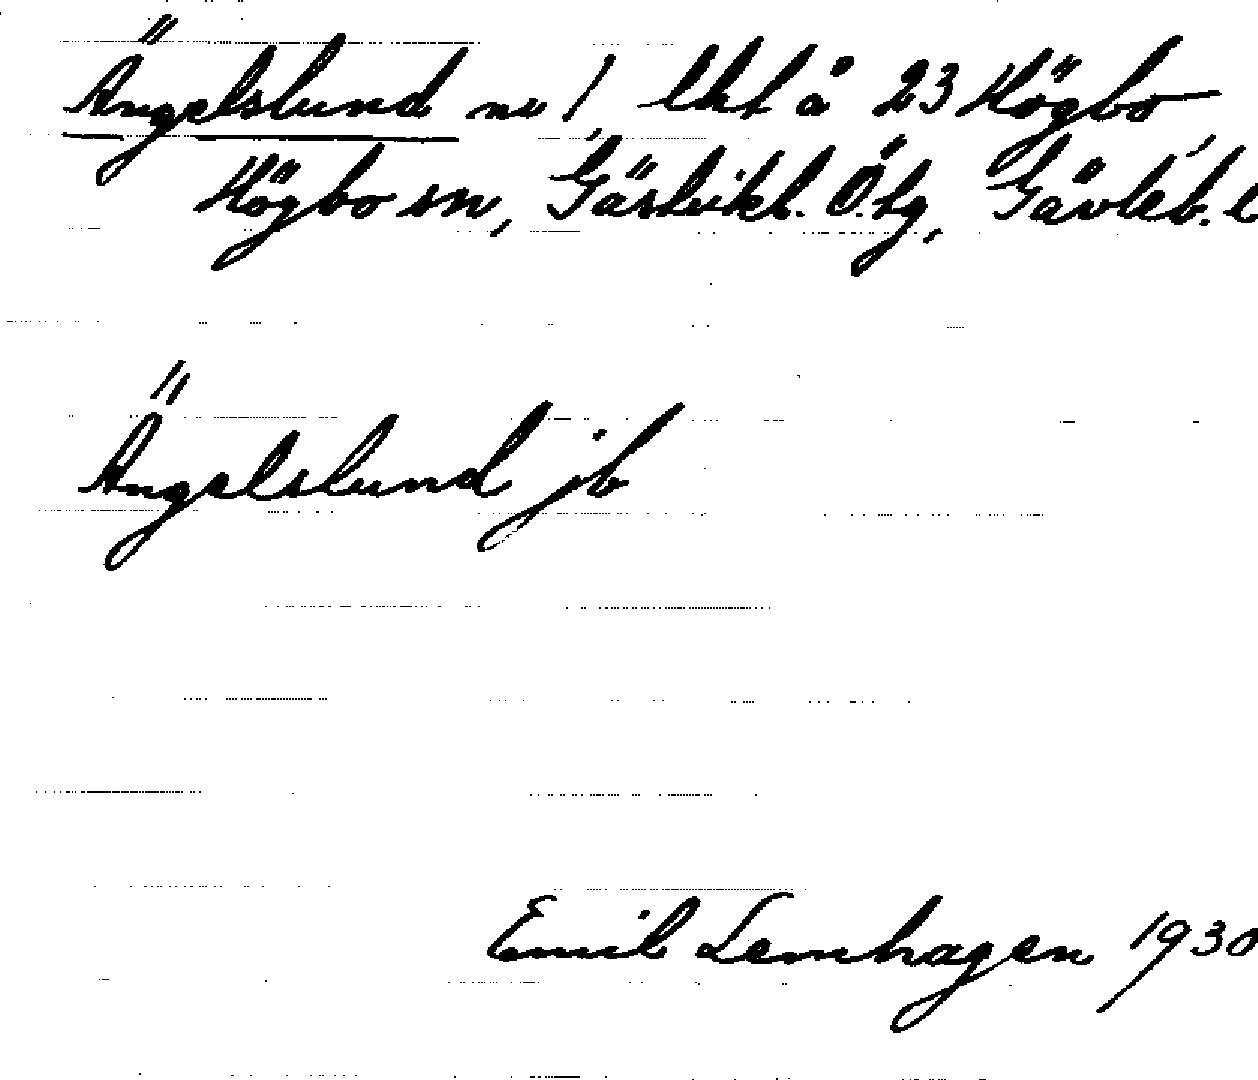 Ängelslund nr 1, lht å 23 Högbo
Högbo sn, Gästrikl. Ö. tg, Gävleb. l
Ängelslund jb
Emil Lemhagen 1930